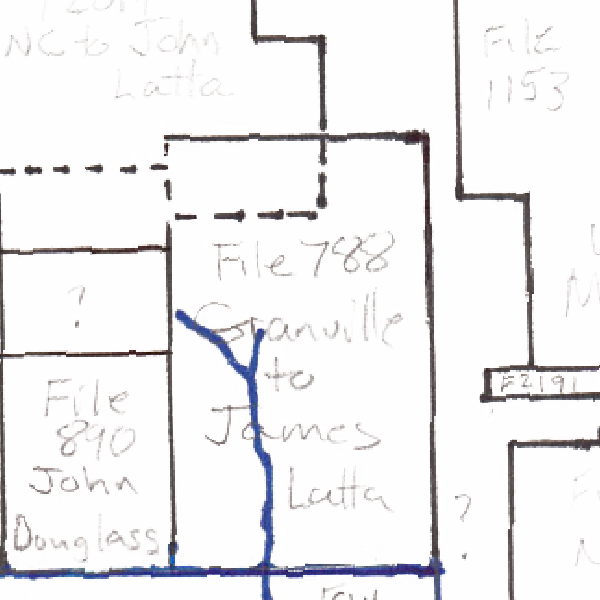 NC to John
Latta
File
1153
File 788
Granville
to
James
Latta
?
File
890
John
Douglass
F2191
?